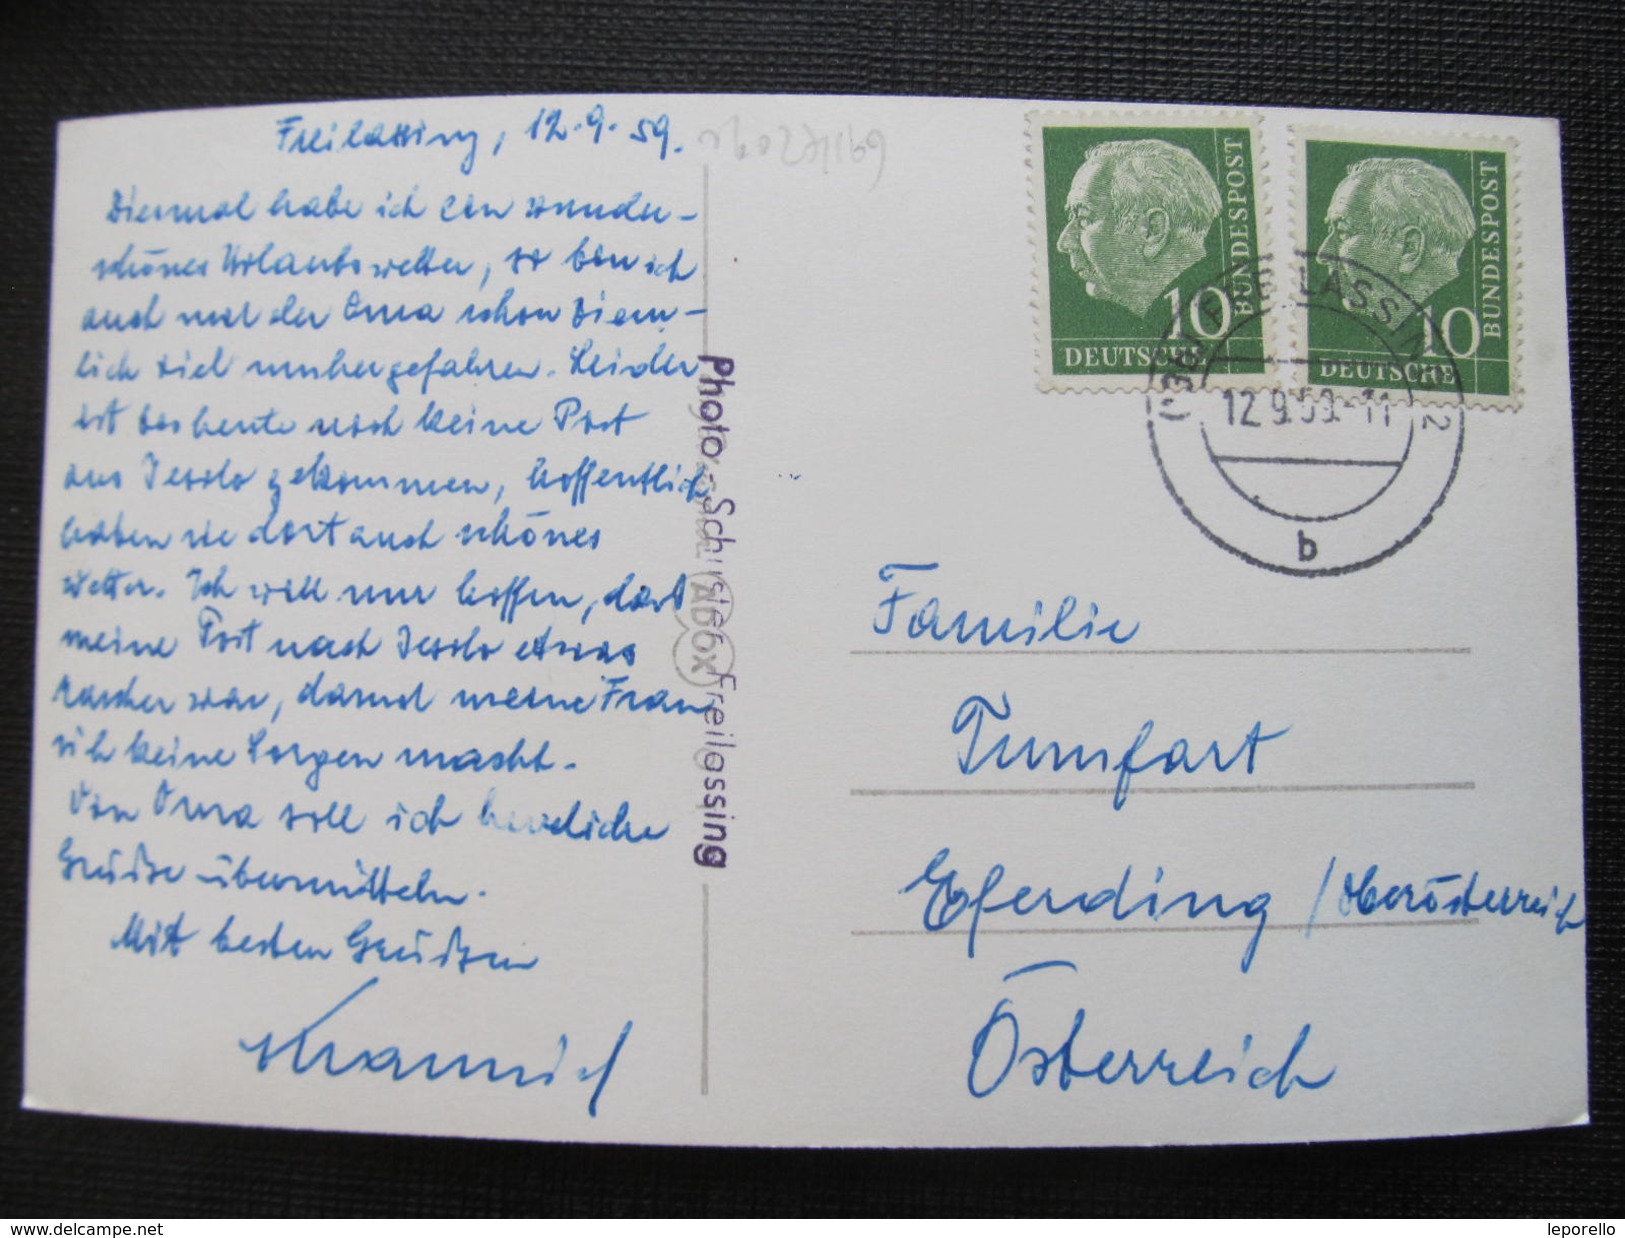 Freilassing, 12.9.59.
Diesmal habe ich ein wunder-
schönes Urlaubswetter, so bin ich
auch mit der Oma schon ziem-
lich viel umhergefahren. Leider
ist bis heute noch keine Post
aus Jesolo gekommen, hoffentlich
haben sie dort auch schönes
Wetter. Ich will nur hoffen, dass
meine Post nach Jesolo etwas
rascher war, damit meine Frau
sich keine Sorgen macht.
Von Oma soll ich herzliche
Grüße übermitteln.
Mit besten Grüßen
Photo-Schuster Freilassing
DEUTSCHE
BUNDESPOST
10
DEUTSCHE
BUNDESPOST
10
FREILASSING 2
12.9.59.-11
b
Familie
Tumfart
Eferding / Oberösterreich
Österreich
delcampe.net
leporello